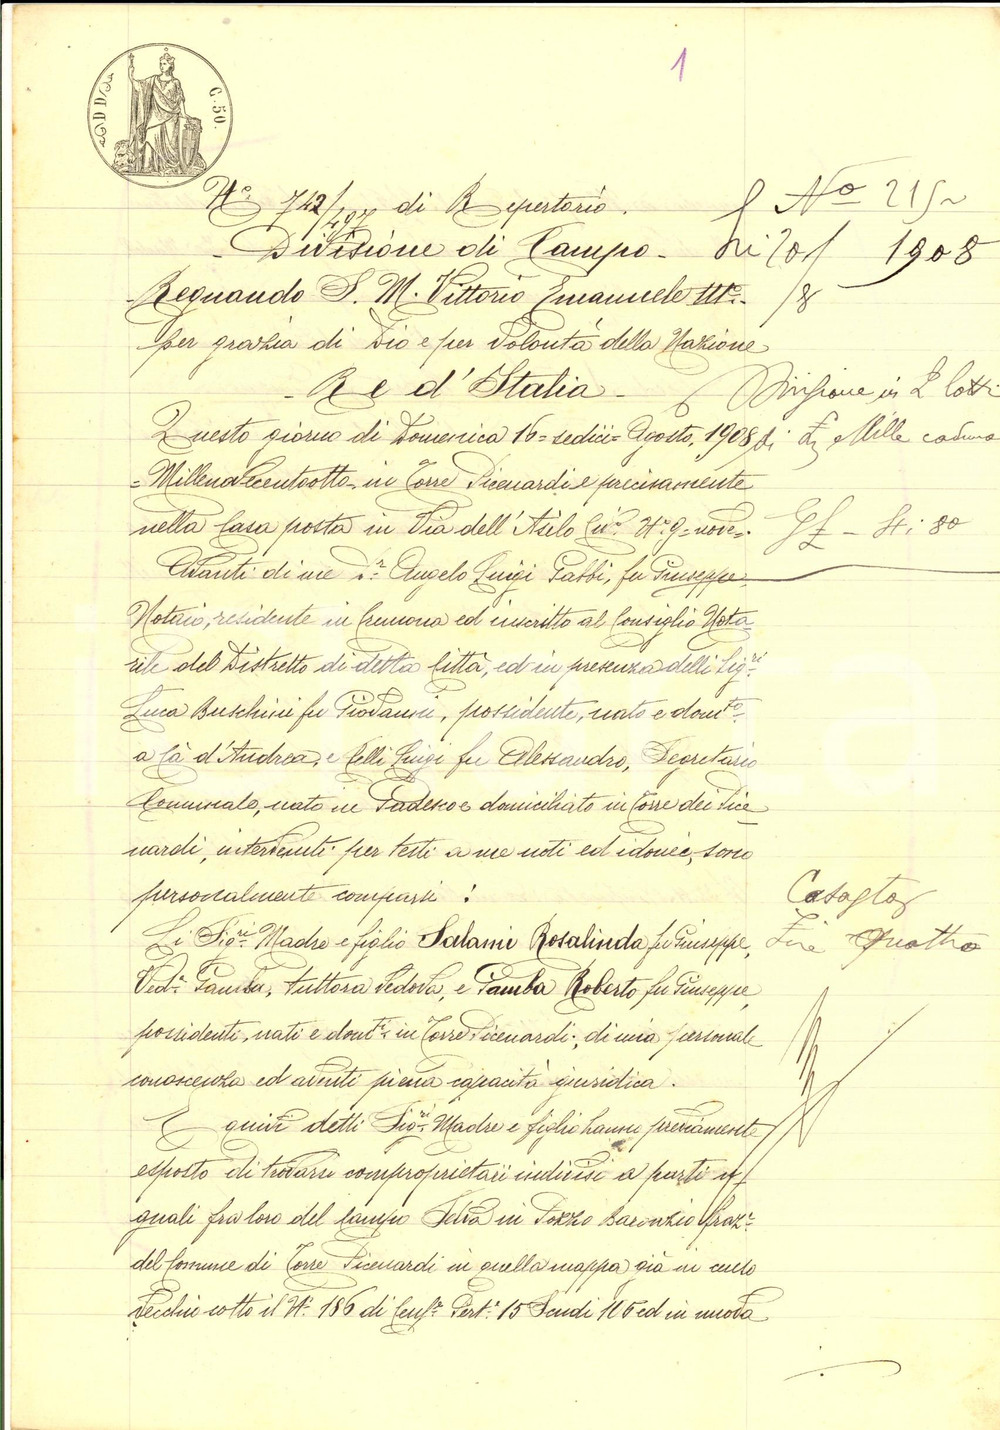 1
C. 50.
No. 742/497 di Repertorio.
No
Divisione di Campo
1908
Regnando S. M. Vittorio Emanuele III.
/8
per grazia di Dio e per Volontà della Nazione
Re d'Italia
Divisione in 2 lotti
Questo giorno di Domenica 16= sedici= Agosto, 1908
di Mille
=Millenovecentootto=, in Torre Picenardi e precisamente
nella Casa posta in Via dell'Asilo Civ.o N.o 9= nove=.
80
Avanti di me D.r Angelo Luigi Gabbi, fu Giuseppe
Notaio, residente in Cremona ed inscritto al Consiglio Nota-
rile del Distretto di detta Città, ed in presenza delli Sig.ri
Luca Buschini fu Giovanni, possidente, nato e dom.to
a Cà d'Andrea, e Celli Luigi fu Alessandro, Segretario
Comunale, nato in Gadesco e domiciliato in Torre dei Pice-
nardi, intervenuti per testi a me noti ed idonei, sono
personalmente comparsi :
Li Sig.ri Madre e figlio Salami Rosalinda fu Giuseppe,
Lire Quattro
Ved.a Gamba, tuttora Vedova, e Gamba Roberto fu Giuseppe,
possidenti, nati e dom.ti in Torre Picenardi; di mia personale
conoscenza ed aventi piena capacità giuridica.
E quivi detti Sig.ri Madre e figlio hanno previamente
esposto di trovarsi comproprietari indivisi a parti u-
guali fra loro del campo in Pozzo Baronzio fraz.e
del Comune di Torre Picenardi in quella mappa già in censo
vecchio sotto il N. 186 di Cens.e Pert.e 15 Scudi 116 ed in nuova